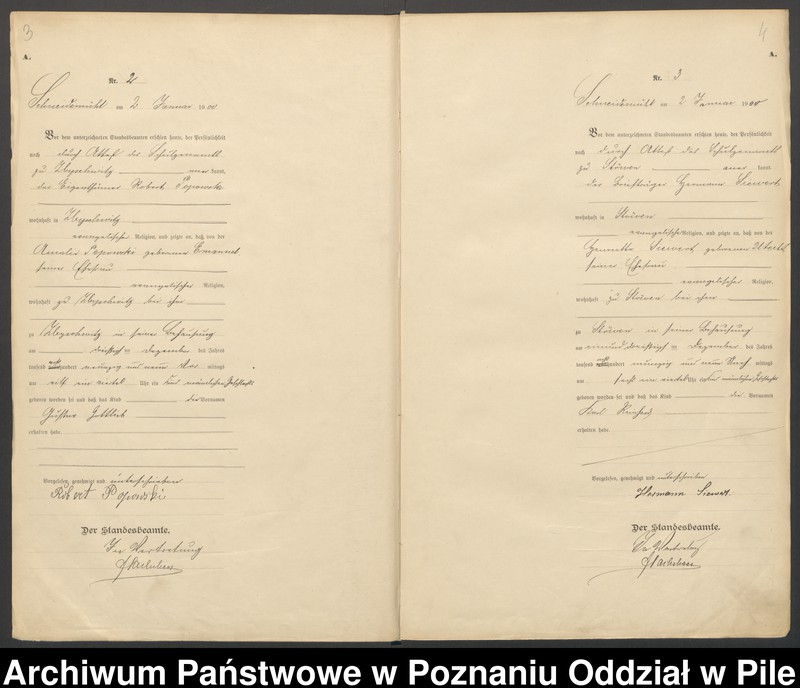 3
A.
Nr. 2
Schneidemühl am 2 Januar 1900
Vor dem unterzeichneten Standesbeamten erschien heute, der Persönlichkeit
nach durch Attest des Schulzenamts
zu kannt,
der Eigenthümer Robert Popowski
wohnhaft in
evangelischer Religion, und zeigte an, daß von der
Amalie Popowski geborenen Emanuel
seiner Ehefrau
evangelischer Religion,
wohnhaft zu bei ihm
zu in seiner Behausung
am dreißigsten Dezember des Jahres
tausend acht hundert neunzig und neun Vor mittags
um elf ein viertel Uhr ein Kind männlichen Geschlechts
geboren worden sei und daß das Kind die Vornamen
Gustav Gottlieb
erhalten habe.
Vorgelesen, genehmigt und unterschrieben
Robert Popowski
Der Standesbeamte.
In Vertretung
4
A.
Nr. 3
Schneidemühl am 2 Januar 1900
Vor dem unterzeichneten Standesbeamten erschien heute, der Persönlichkeit
nach durch Attest des Schulzenamts
zu Stöwen kannt,
der Briefträger Hermann Siewert
wohnhaft in Stöwen
evangelischer Religion, und zeigte an, daß von der
Siewert geborenen
seiner Ehefrau
evangelischer Religion,
wohnhaft zu Stöwen bei ihm
zu Stöwen in seiner Behausung
am einunddreißigsten Dezember des Jahres
tausend acht hundert neunzig und neun Nach mittags
um ein viertel Uhr ein Kind männlichen Geschlechts
geboren worden sei und daß das Kind die Vornamen
Karl
erhalten habe.
Vorgelesen, genehmigt und unterschrieben
Hermann Siewert.
Der Standesbeamte.
In Vertretung
Archiwum Państwowe w Poznaniu Oddział w Pile